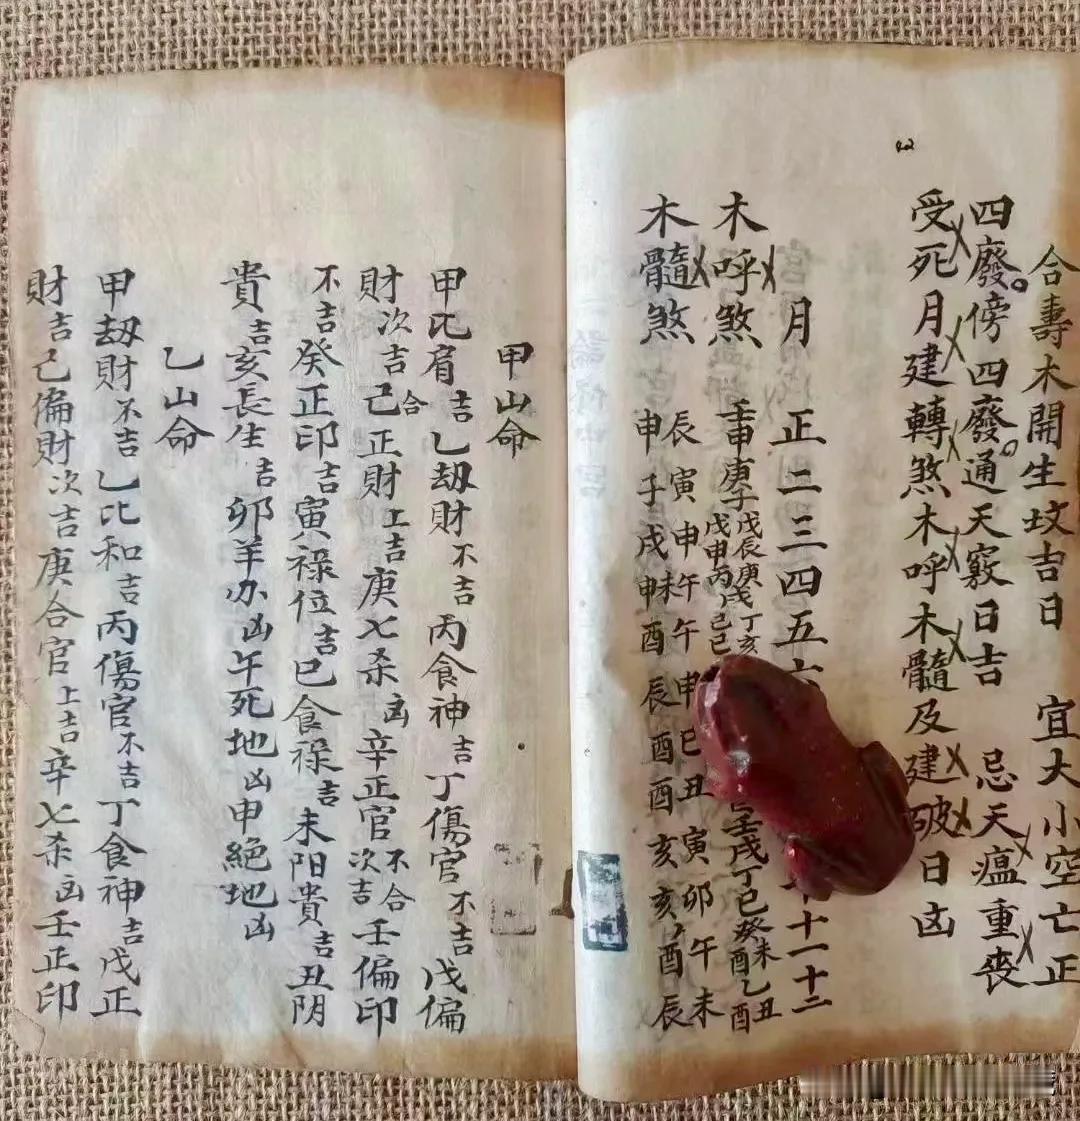 合壽木開生坟吉日 宜大小空亡正
四廢傍四廢通天竅日吉 忌天瘟重喪
受死月建轉煞木呼木髓及建破日凶
月 正二三四五六 十十一十二
木呼煞 壬申庚子戊辰庚戌丁亥 戊申丙己巳 壬戌丁巳癸未乙丑 酉酉
木髓煞 辰寅申午午申巳丑寅卯午未
申子戌未申酉辰酉酉亥亥酉辰
甲山命
甲比肩吉乙劫財不吉丙食神吉丁傷官不吉戊偏
財次吉己合正財上吉庚七杀凶辛正官次吉不合壬偏印
不吉癸正印吉寅祿位吉巳食祿吉未陽貴吉丑阴
貴吉亥長生吉卯羊刃凶午死地凶申絕地凶
乙山命
甲劫財不吉乙比和吉丙傷官不吉丁食神吉戊正
財吉己偏財次吉庚合官上吉辛七杀凶壬正印
42